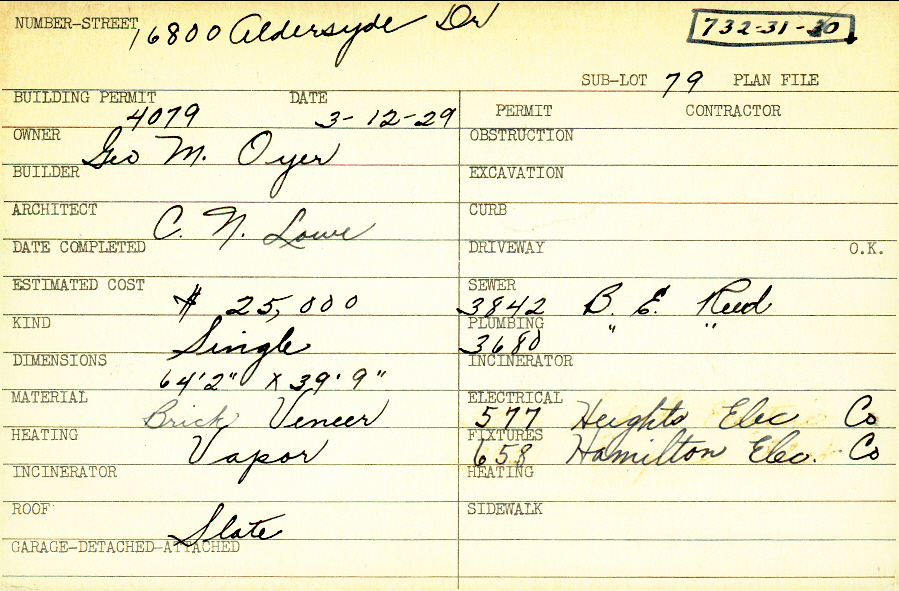 NUMBER-STREET 16800 Aldersyde Dr
732-31-20
SUB-LOT 79 PLAN FILE
BUILDING PERMIT 4079 DATE 3-12-29
OWNER Geo M. Oyer
BUILDER
ARCHITECT C. N. Lowe
DATE COMPLETED
ESTIMATED COST $ 25,000
KIND Single
DIMENSIONS 64'2" x 39'9"
MATERIAL Brick Veneer
HEATING Vapor
INCINERATOR
ROOF Slate
GARAGE-DETACHED-ATTACHED
PERMIT CONTRACTOR
OBSTRUCTION
EXCAVATION
CURB
DRIVEWAY O.K.
SEWER 3842 B. E. Reed
PLUMBING 3680 " "
INCINERATOR
ELECTRICAL 577 Heights Elec Co
FIXTURES 658 Hamilton Elec. Co
HEATING
SIDEWALK